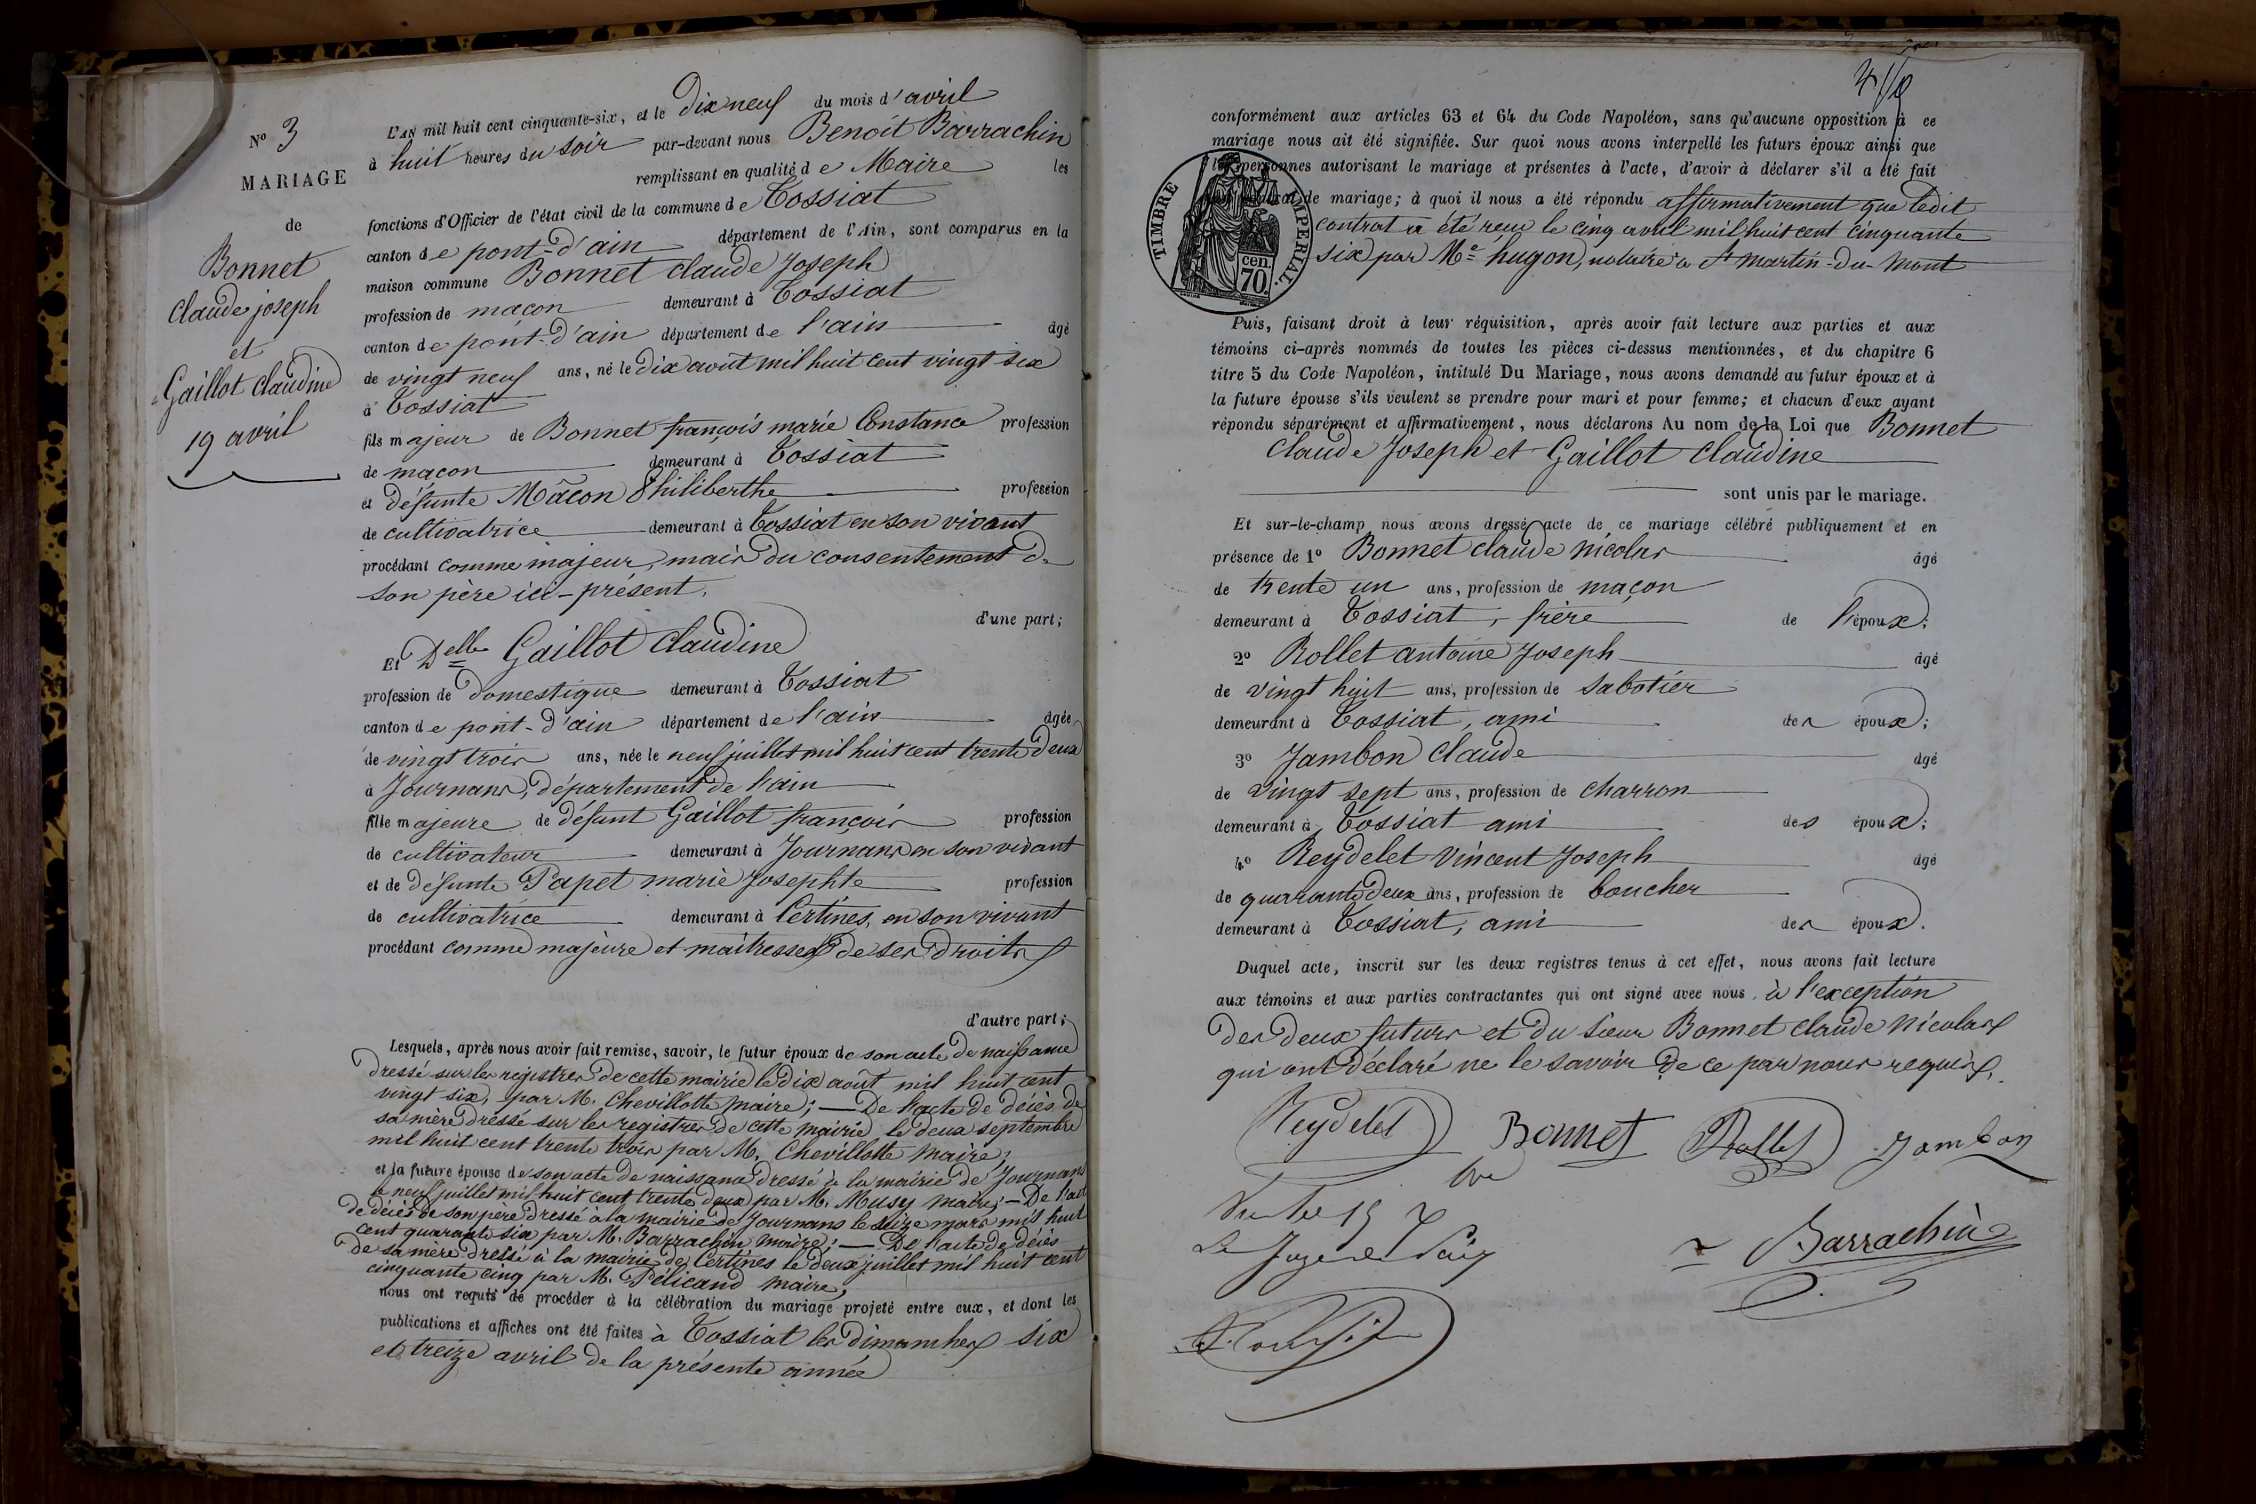 No 3
MARIAGE
de
Bonnet
Claude joseph
et
Gaillot Claudine
19 avril
L'AN mil huit cent cinquante-six, et le Dix neuf du mois d'avril
à huit heures du soir par-devant nous Benoit Barrachin
remplissant en qualité de Maire les
fonctions d'Officier de l'état civil de la commune de Tossiat
canton de pont-d'ain département de l'Ain, sont comparus en la
maison commune Bonnet Claude Joseph
profession de maçon demeurant à Tossiat
canton de pont-d'ain département de l'ain âgé
de vingt neuf ans, né le Dix août mil huit cent vingt six
à Tossiat
fils majeur de Bonnet françois marie Constance profession
de maçon demeurant à Tossiat
et défunte Mâcon Philiberthe profession
de cultivatrice demeurant à Tossiat en son vivant
procédant comme majeur, mais du consentement de
son père ici-présent.
d'une part;
Et Delle Gaillot Claudine
profession de domestique demeurant à Tossiat
canton de pont-d'ain département de l'ain âgée
de vingt trois ans, née le neuf juillet mil huit cent trente deux
à Journans, département de l'ain
fille majeure de défunt Gaillot françois profession
de cultivateur demeurant à Journans en son vivant
et de défunte Papet marie Josephte profession
de cultivatrice demeurant à Certines, en son vivant
procédant comme majeure et maitresse de ses droits
d'autre part;
Lesquels, après nous avoir fait remise, savoir, le futur époux de son acte de naissance
dressé sur les registres de cette mairie le dix août mil huit cent
vingt six, par M. Chevillotte maire; — De l'acte de décès de
sa mère dressé sur les registres de cette mairie le deux septembre
mil huit cent trente trois par M. Chevillotte maire;
et la future épouse de son acte de naissance dressé à la mairie de Journans
le neuf juillet mil huit cent trente deux par M. Musy maire; — De l'acte
de décès de son père dressé à la mairie de Journans le seize mars mil huit
cent quarante six par M. Barrachin maire; — De l'acte de décès
de sa mère dressé à la mairie de Certines le deux juillet mil huit cent
cinquante cinq par M. Pélicand maire,
nous ont requis de procéder à la célébration du mariage projeté entre eux, et dont les
publications et affiches ont été faites à Tossiat les dimanches six
et treize avril de la présente année
conformément aux articles 63 et 64 du Code Napoléon, sans qu'aucune opposition à ce
mariage nous ait été signifiée. Sur quoi nous avons interpellé les futurs époux ainsi que
les personnes autorisant le mariage et présentes à l'acte, d'avoir à déclarer s'il a été fait
de mariage; à quoi il nous a été répondu affirmativement que ledit
contrat a été reçu le cinq avril mil huit cent cinquante
six par Me hugon, notaire à St martin-du-mont
TIMBRE IMPERIAL.
70 cen.
Puis, faisant droit à leur réquisition, après avoir fait lecture aux parties et aux
témoins ci-après nommés de toutes les pièces ci-dessus mentionnées, et du chapitre 6
titre 5 du Code Napoléon, intitulé Du Mariage, nous avons demandé au futur époux et à
la future épouse s'ils veulent se prendre pour mari et pour femme; et chacun d'eux ayant
répondu séparément et affirmativement, nous déclarons Au nom de la Loi que Bonnet
Claude Joseph et Gaillot Claudine
sont unis par le mariage.
Et sur-le-champ nous avons dressé acte de ce mariage célébré publiquement et en
présence de 1o Bonnet claude Nicolas âgé
de trente un ans, profession de maçon
demeurant à Tossiat, frère de l'époux;
2o Rollet antoine Joseph âgé
de vingt huit ans, profession de sabotier
demeurant à Tossiat, ami des époux;
3o Jambon Claude âgé
de vingt sept ans, profession de charron
demeurant à Tossiat ami des époux;
4o Reydelet Vincent Joseph âgé
de quarante deux ans, profession de boucher
demeurant à Tossiat, ami des époux.
Duquel acte, inscrit sur les deux registres tenus à cet effet, nous avons fait lecture
aux témoins et aux parties contractantes qui ont signé avec nous, à l'exception
des deux futurs et du sieur Bonnet claude Nicolas
qui ont déclaré ne le savoir de ce par nous requis.
Reydelet Bonnet Rollet Jambon
Barrachin
Le Juge de Paix